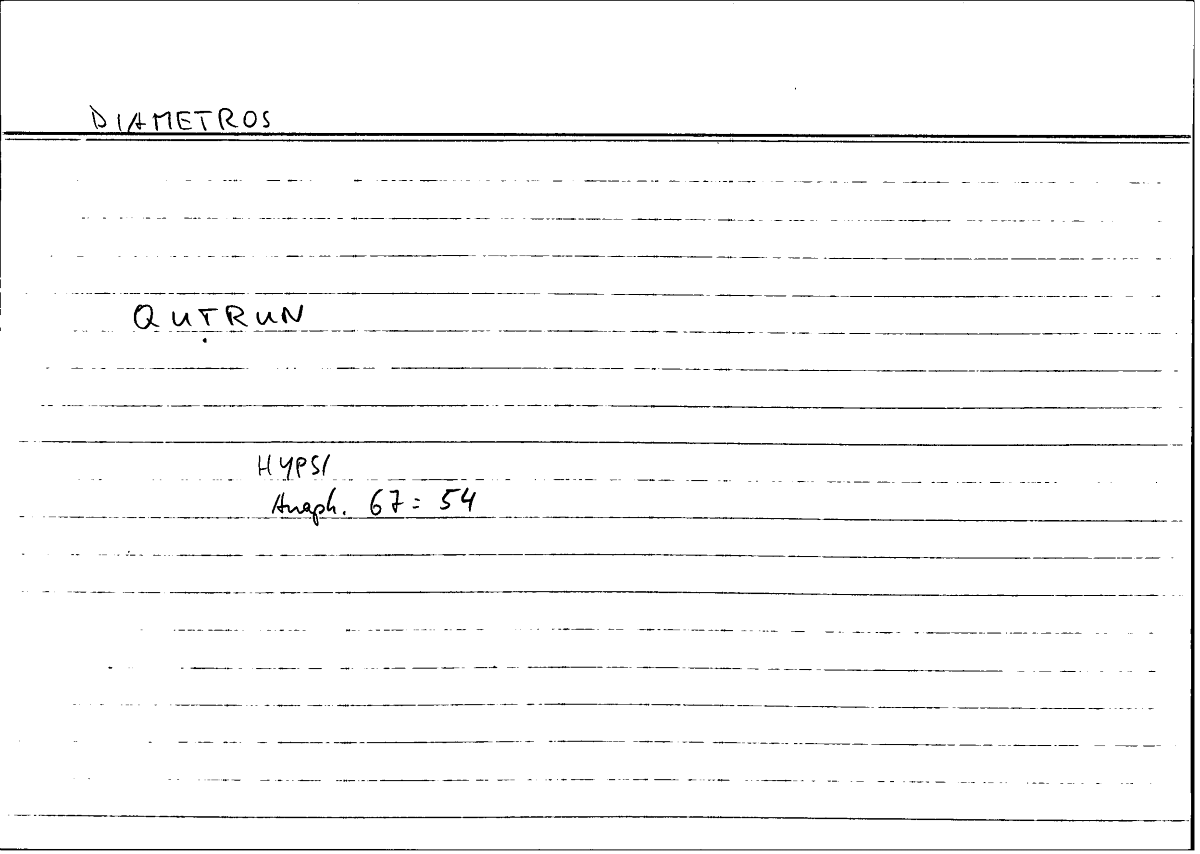 DIAMETROS
QUṬRUN
HYPSI
Anaph. 67 = 54